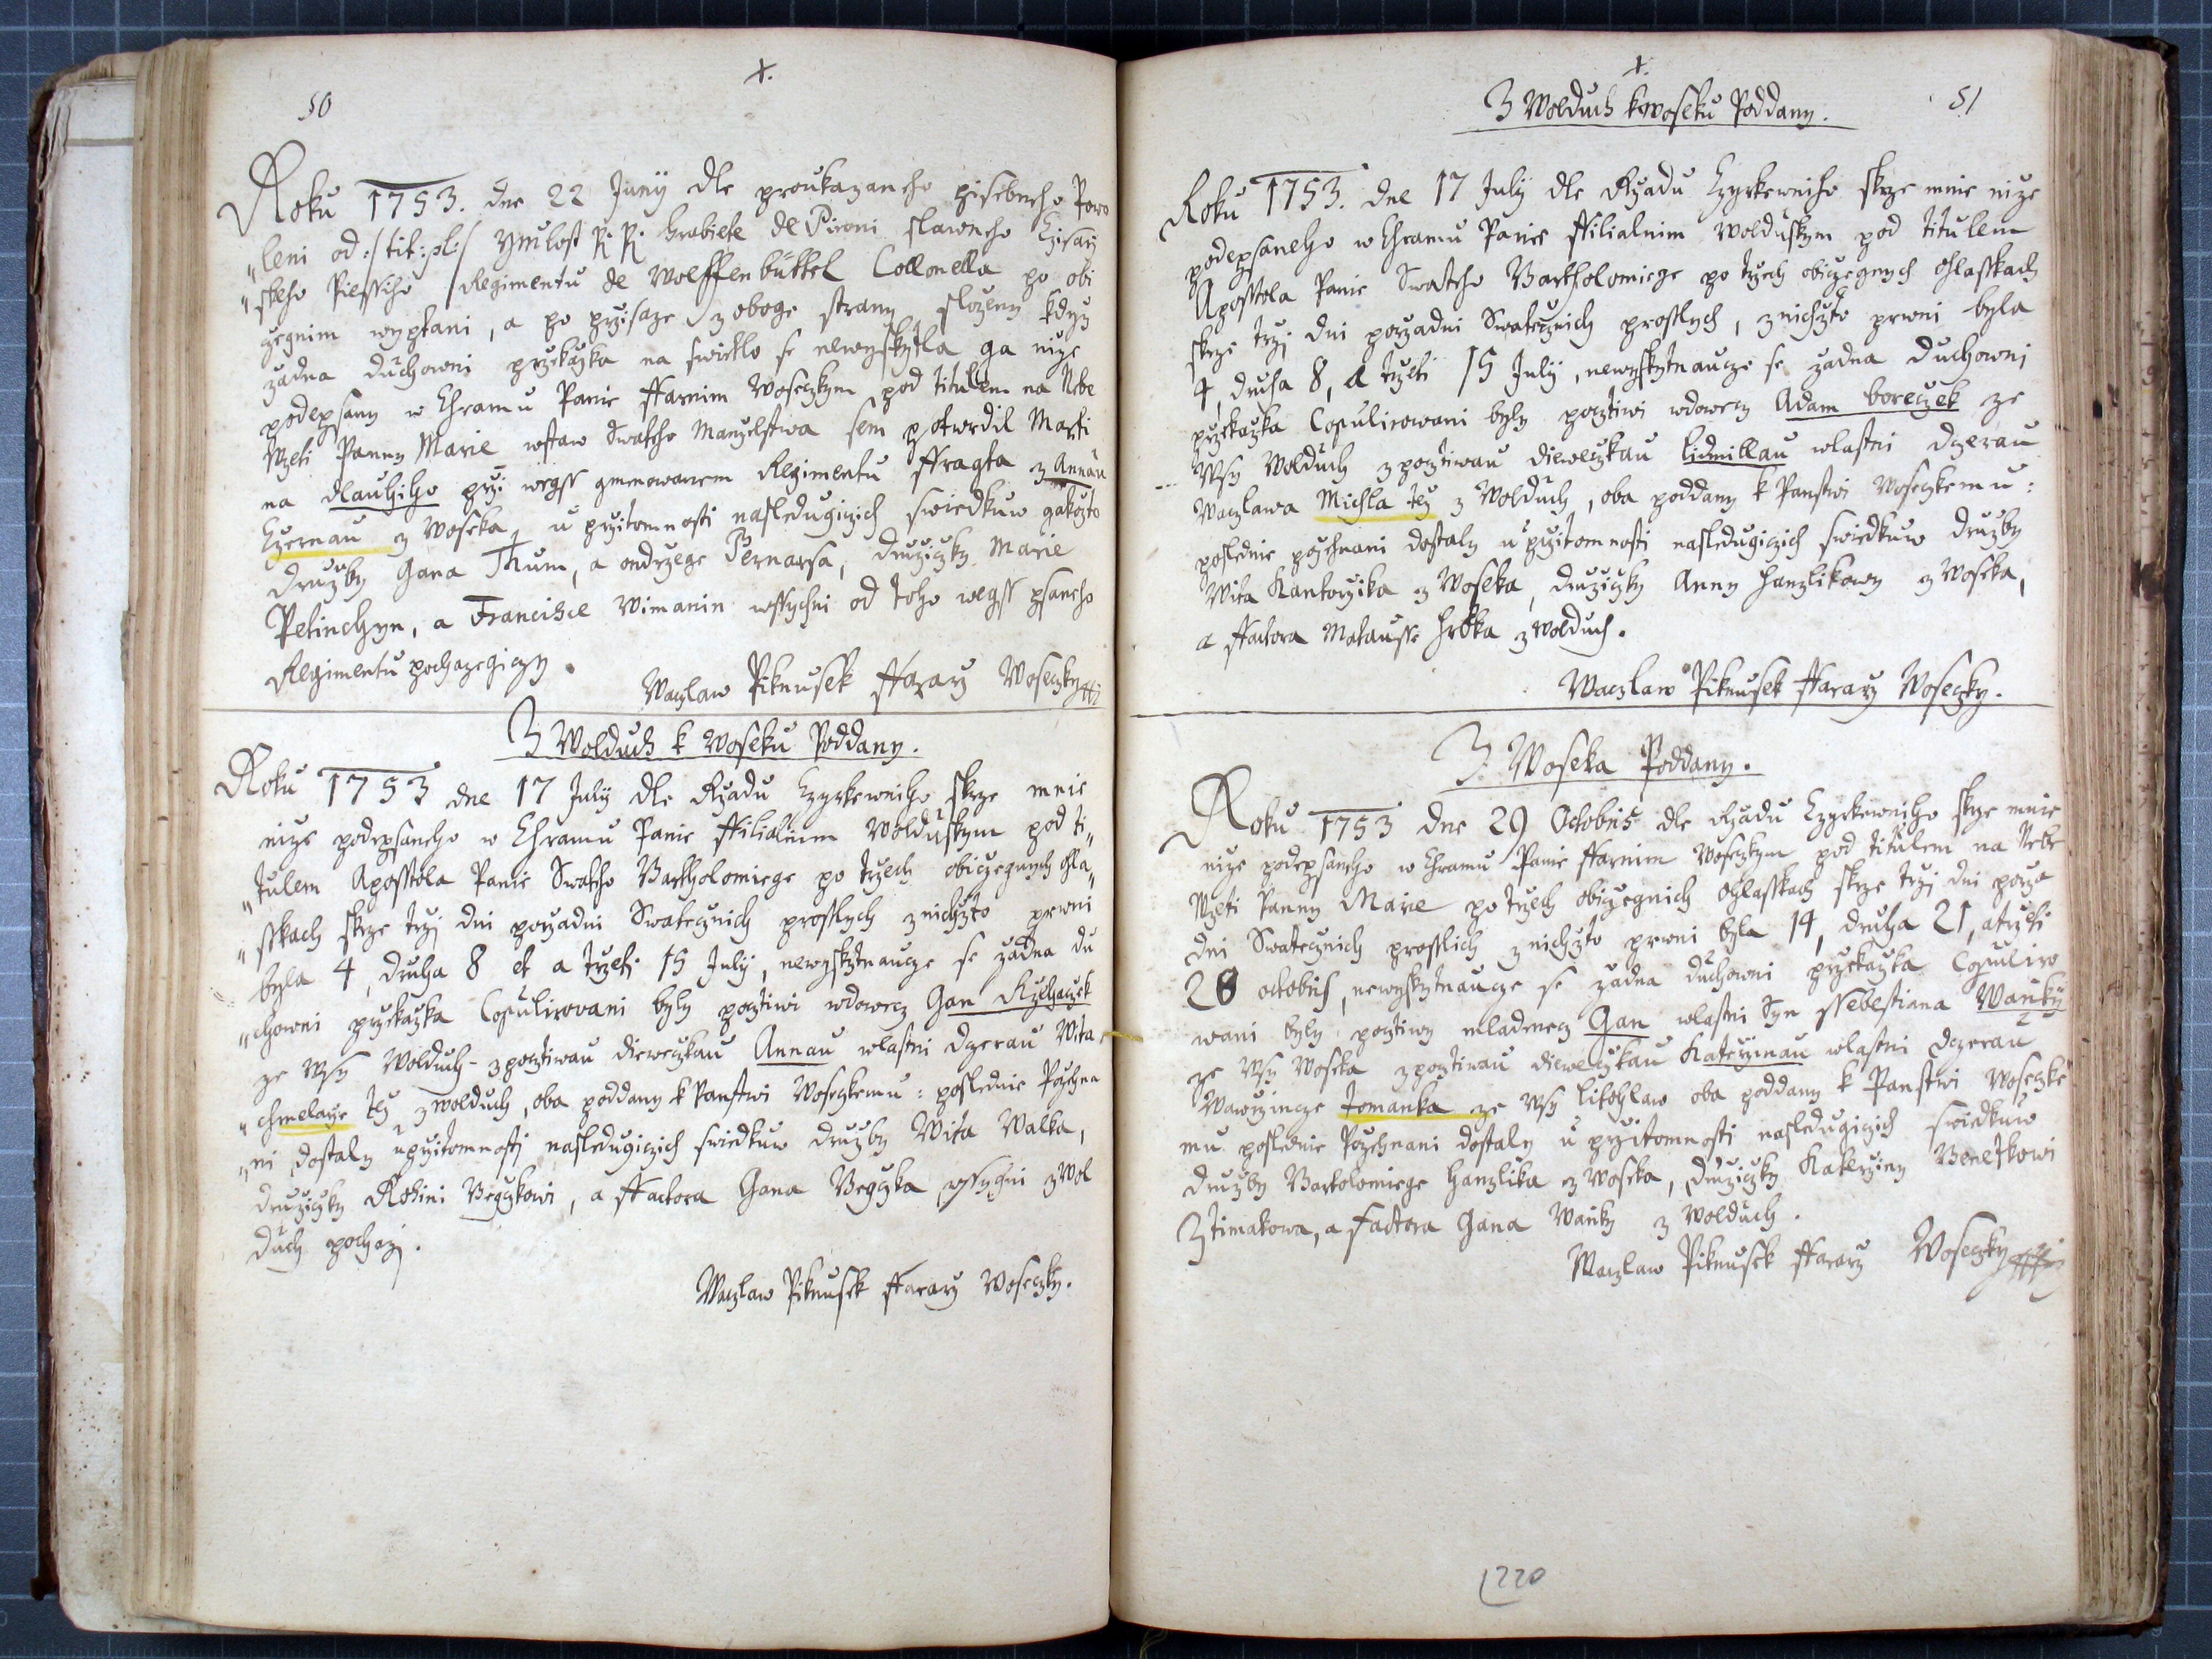 50
x.
Roku 1753. dne 22 Juny dle proukazaneho pisebneho Powo
„leni od :/tit: pl:/ Ymilost R: R: hrabiete de Pironi slawneho Czisarz
„skeho Piessiho Regimentu de Wolffenbüttel Collonella po obi
czegnim wyptani, a po przisaze z oboge strany slozeny kdyz
zadna duchowni przekazka na swietlo se newyskytla ga nize
podepsany w Chramu Panie ffarnim Woseczkym pod titulem na Nebe
Wzeti Panny Marie wstaw Swateho Manzelstwa sem potwrdil Marti
na dlauhiho przi wegss gmenowanem Regimentu ffragta z Annau
Czernau z Woseka, u przitomnosti nasledugiczich swiedkuw gakozto
druzby Gana Thum, a ondrzege Pernarsa, druziczky Marie
Petinchyn, a Francisce Wimanin wssychni od toho wegss psaneho
Regimentu pochazegiczy.
Waczlaw Piknusek ffararz Woseczky
Z Wolduch k Woseku Poddany.
Roku 1753 dne 17 July dle Rzadu Czyrkewniho skrze mnie
nize podepsaneho w Chramu Panie ffilialnim Wolduskym pod ti„
„tulem Aposstola Panie Swateho Bartholomiege po trzech obiczegnych ohla„
„sskach skrze trzj dni porzadni Swateznich prosslych z nichzto prwni
byla 4, druha 8 et a trzeti 15 July, newyskytnaucze se zadna du
„chowni przekazka Copulirovani byly pocztiwi wdowecz Gan Rzehaczek
ze Wsy Wolduch - z pocztiwau diweczkau Annau wlastni dczerau Wita
„chmelarze tez z Wolduch, oba poddany k Panstwi Woseczkemu: poslednie Pozehna
„ni dostaly u przitomnosti nasledugiczich swiedkuw druzby Wita Walka,
druziczky Rohini Begczkowi, a ffactora Gana Begczka wssychni z Wol
duch pochazj.
Waczlaw Piknusek ffararz Woseczky.
x.
51
Z Wolduch k Woseku Poddany.
Roku 1753. dne 17 July dle Rzadu Czyrkewniho skrze mnie nize
podepsaneho w Chramu Panie ffilialnim Wolduskym pod titulem
Aposstola Panie Swateho Bartholomiege po trzech obiczegnych ohlasskach
skrze trzj dni porzadni Swateznich prosslych, z nichzto prwni byla
4, druha 8, a trzeti 15 July, newyskytnaucze se zadna duchowni
przekazka Copulirowani byly pocztiwi wdowecz Adam boreczek ze
Wsy Wolduch z pocztiwau dieweczkau Lidmillau wlastni dczerau
Waczlawa Michla tez z Wolduch, oba poddany k Panstwi Woseczkemu:
poslednie pozehnani dostaly u przitomnosti nasledugiczich swiedkuw druzby
Wita Kantorzika z Woseka, druziczky Anny hanzlikowy z Woseka,
a ffactora Matausse hrbka z Wolduch.
Waczlaw Piknusek ffararz Woseczky.
Z Woseka Poddany.
Roku 1753 dne 29 Octobris dle Rzadu Czyrkewniho skrze mnie
nize podepsaneho w Chramu Panie ffarnim Woseczkym pod titulem na Nebe
Wzeti Panny Marie po trzech obiczegnich Ohlasskach skrze trzj dni porza
dni Swateznich prosslich z nichzto prwni byla 14, druha 21, a trzeti
28 octobris, newyskytnaucze se zadna duchowni przekazka Copuliro
wani byly pocztiwy mladenecz Gan wlastni Syn ssebestiana Wanky
ze Wsy Woseka z pocztiwau dieweczkau Katerzinau wlastni dczerau
Wawrzincze Tomanka ze Wsy litohlaw oba poddany k Panstwi Woseczke
mu poslednie Pozehnani dostaly u przitomnosti nasledugiczich swiedkuw
druzby Bartolomiege Hanzlika z Woseka, druziczky Katerziny Benetkowi
Z timakowa, a factora Gana Wanky z Wolduch.
Waczlaw Piknusek ffararz Woseczky
220